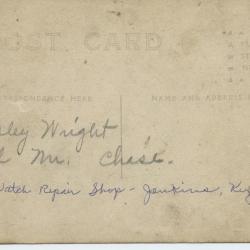 POST CARD
CORRESPONDENCE HERE
NAME AND ADDRESS
ley Wright
Mr. Chase.
Watch Repair Shop - Jenkins, Ky